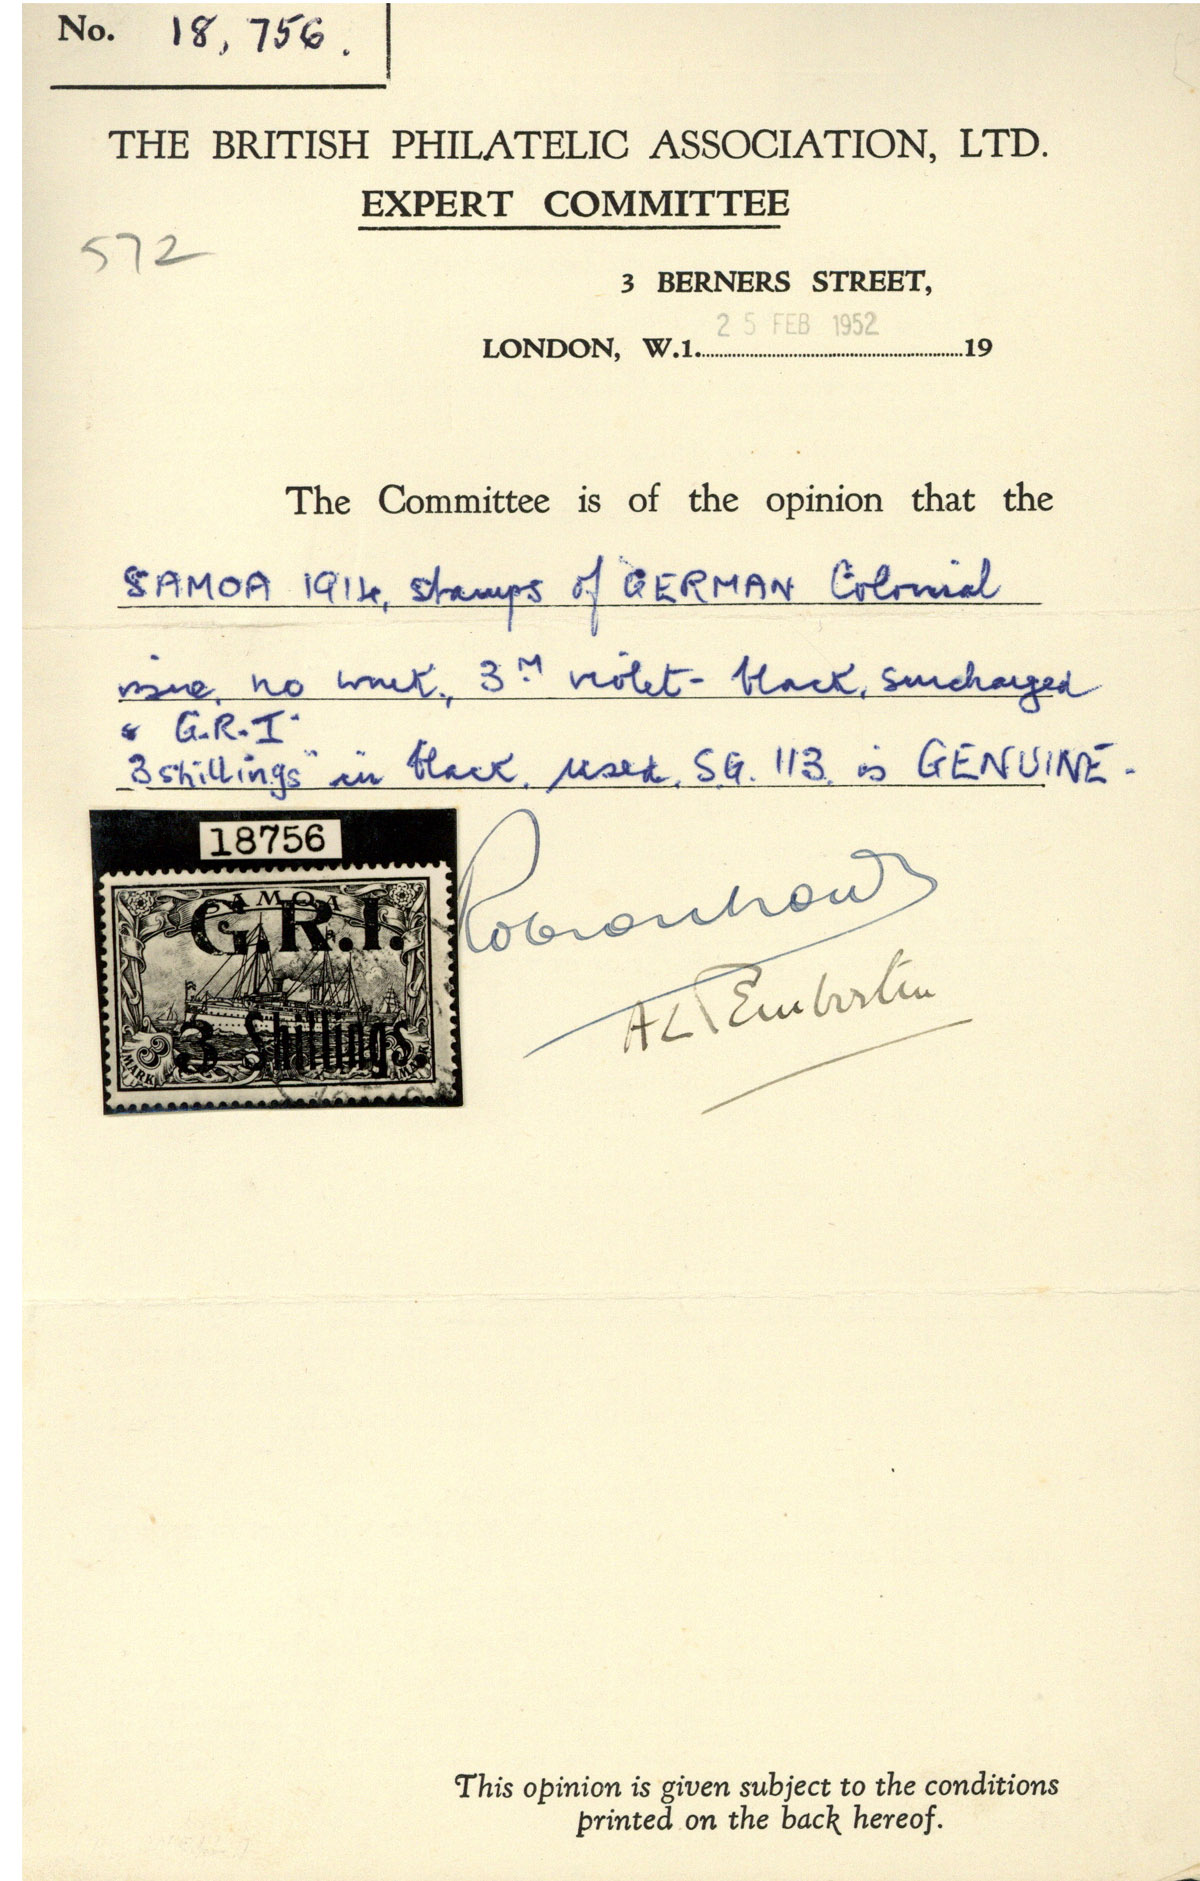 No. 18,756.
THE BRITISH PHILATELIC ASSOCIATION, LTD.
EXPERT COMMITTEE
572
3 BERNERS STREET,
25 FEB 1952
LONDON, W.1. 19
The Committee is of the opinion that the
SAMOA 1914, stamps of GERMAN Colonial
issue, no wmk., 3M violet-black, surcharged
"G.R.I.
3 shillings" in black, used, S.G. 113, is GENUINE.
18756
SAMOA
G.R.I.
3 Shillings.
3 MARK MARK
AL Emberlin
This opinion is given subject to the conditions
printed on the back hereof.